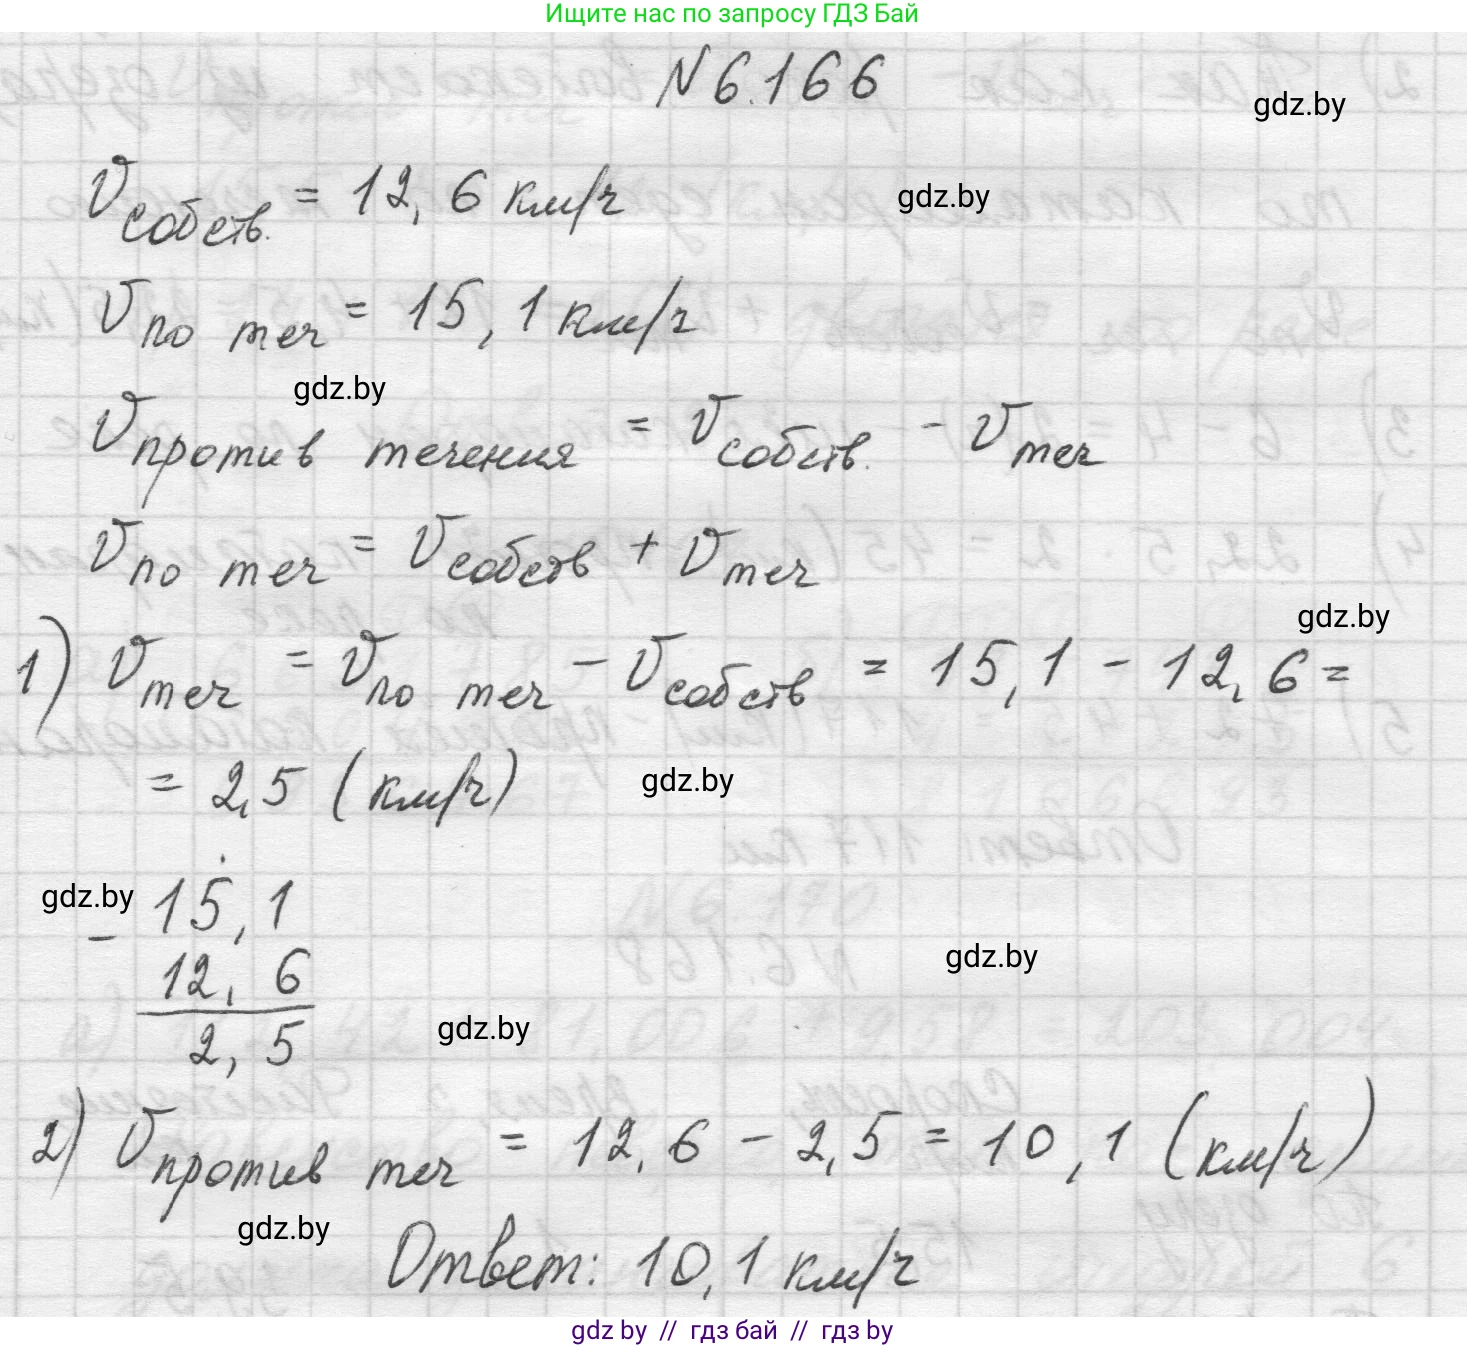 Ищите нас по запросу ГДЗ Бай
№ 6.166
gdz.by
vсобств. = 12,6 км/ч
gdz.by
vпо теч = 15,1 км/ч
gdz.by
vпротив течения = vсобств. - vтеч
vпо теч = vсобств + vтеч
gdz.by
1) vтеч = vпо теч - vсобств = 15,1 - 12,6 =
= 2,5 (км/ч)
gdz.by
gdz.by
- 15,1
12,6
gdz.by
2,5
gdz.by
2) vпротив теч = 12,6 - 2,5 = 10,1 (км/ч)
gdz.by
Ответ: 10,1 км/ч
gdz by // гдз бай // гдз by